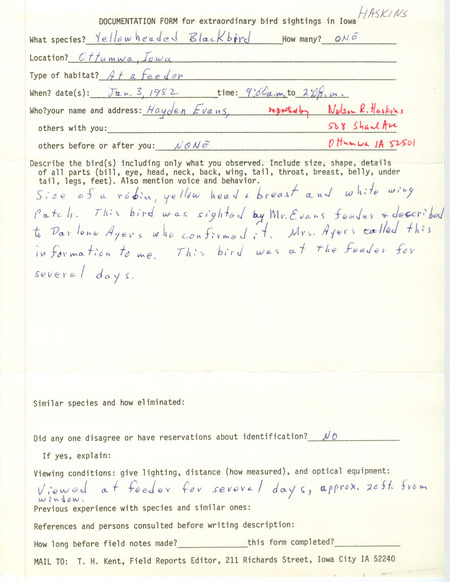 HASKINS
DOCUMENTATION FORM for extraordinary bird sightings in Iowa
What species? Yellowheaded Blackbird How many? ONE
Location? Ottumwa, Iowa
Type of habitat? At a feeder
When? date(s): Jan. 3, 1982 time: 9:00a.m to p.m.
Who?your name and address: Hayden Evans, reported by Nelson R. Haskins
others with you: 508 Shaul Ave
others before or after you: NONE Ottumwa IA 52501
Describe the bird(s) including only what you observed. Include size, shape, details
of all parts (bill, eye, head, neck, back, wing, tail, throat, breast, belly, under
tail, legs, feet). Also mention voice and behavior.
Size of a robin, yellow head & breast and white wing
Patch. This bird was sighted by Mr. Evans feeder & described
to Darlene Ayers who confirmed it. Mrs. Ayers called this
information to me. This bird was at the feeder for
several days.
Similar species and how eliminated:
Did any one disagree or have reservations about identification? NO
If yes, explain:
Viewing conditions: give lighting, distance (how measured), and optical equipment:
Viewed at feeder for several days, approx. 20ft. from
window.
Previous experience with species and similar ones:
References and persons consulted before writing description:
How long before field notes made? this form completed?
MAIL TO: T. H. Kent, Field Reports Editor, 211 Richards Street, Iowa City IA 52240